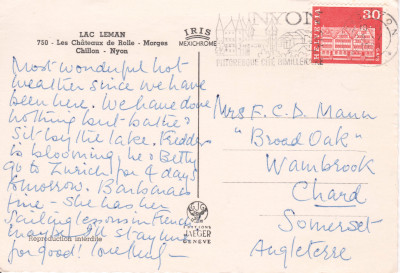 LAC LEMAN
750 - Les Châteaux de Rolle - Morges
Chillon - Nyon
IRIS
MEXICHROME
NYON
PITTORESQUE CITÉ
HELVETIA
30
Most wonderful hot
weather since we have
been here. We have done
nothing but bathe &
sit by the lake.
is blooming, he & Betty
go to Zurich for 4 days
tomorrow. Barbara is
fine - she has her
sailing lessons in French
maybe I'll stay here
for good! love
Reproduction interdite
EDITIONS
JAEGER
GENEVE
Mrs F. C. D. Mann
"Broad Oak"
Wambrook
Chard
Somerset
Angleterre